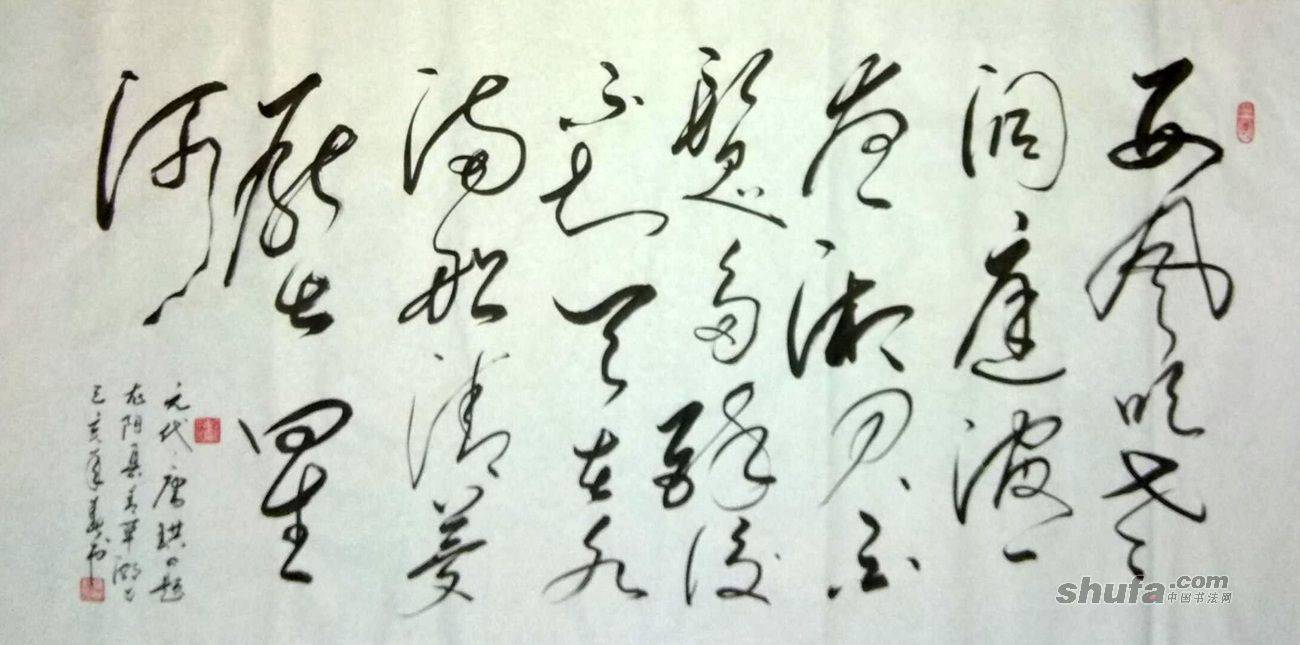 西風吹老
洞庭波一
夜湘君白
髮多醉後
不知天在水
満船清夢
壓星
河
元代唐珙题
龙阳县青草湖
己亥年
shufa.com
中国书法网